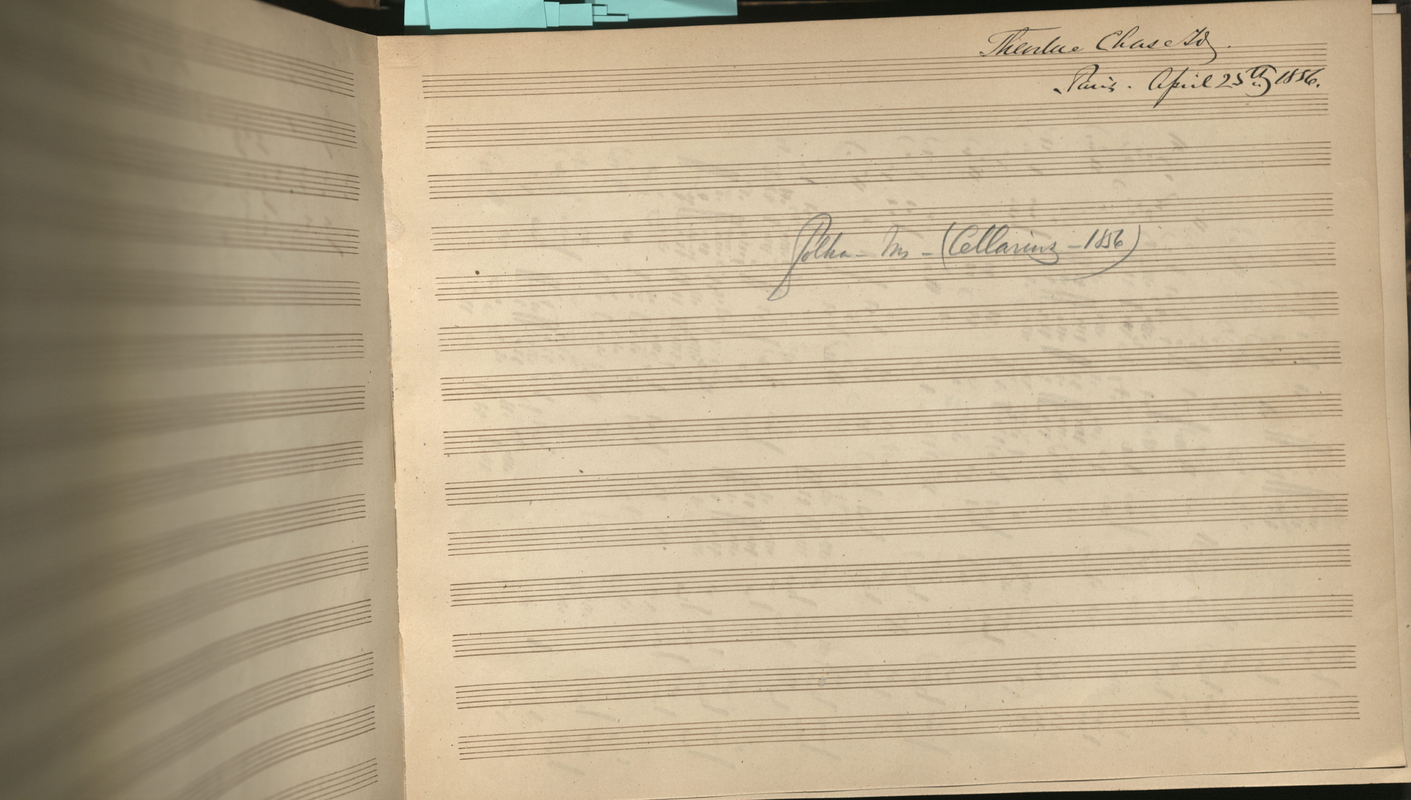 Theodore Chase Jr.
Paris. April 25th 1856.
Polka - Ms - (Cellarius - 1856)